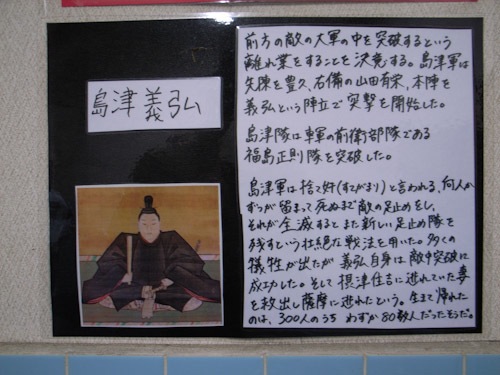 島津義弘
前方の敵の大軍の中を突破するという
離れ業をすることを決意する。島津軍は
先陣を豊久、右備の山田有栄、本陣を
義弘という陣立で突撃を開始した。
島津隊は東軍の前衛部隊である
福島正則隊を突破した。
島津軍は捨て奸(すてがまり)と言われる、何人か
ずつが留まって死ぬまで敵の足止めをし、
それが全滅するとまた新しい足止め隊を
残すという壮絶な戦法を用いた。多くの
犠牲が出たが義弘自身は敵中突破に
成功した。そして摂津住吉に逃れていた妻
を救出し薩摩に逃れたという。生きて帰れた
のは、300人のうち わずか80数人だったそうだ。